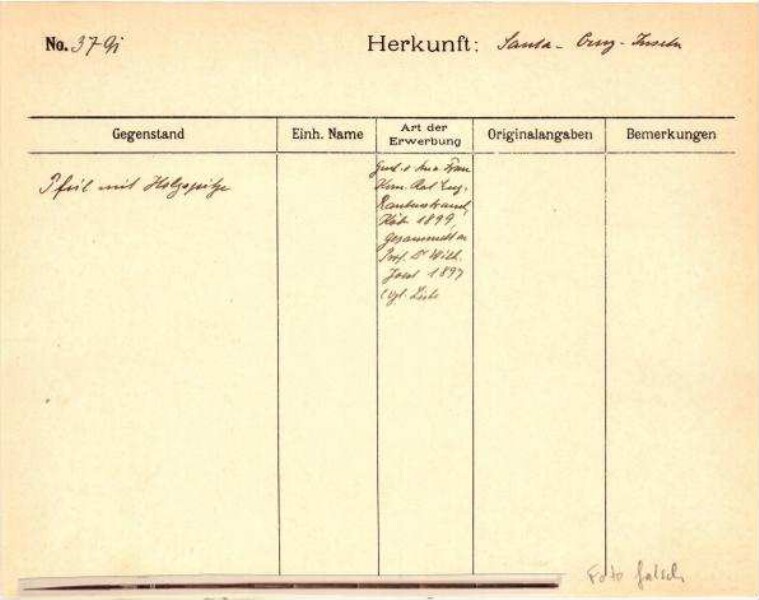 No. 3791
Herkunft: Santa-Cruz-Inseln
Gegenstand
Einh. Name
Art der Erwerbung
Originalangaben
Bemerkungen
Pfeil mit Holzspitze
Frau
Kom. Rat Eug.
Rautenstrauch,
Köln 1899,
gesammelt von
Prof. Dr Wilh.
Joest 1897
(vgl. Liste
Foto falsch